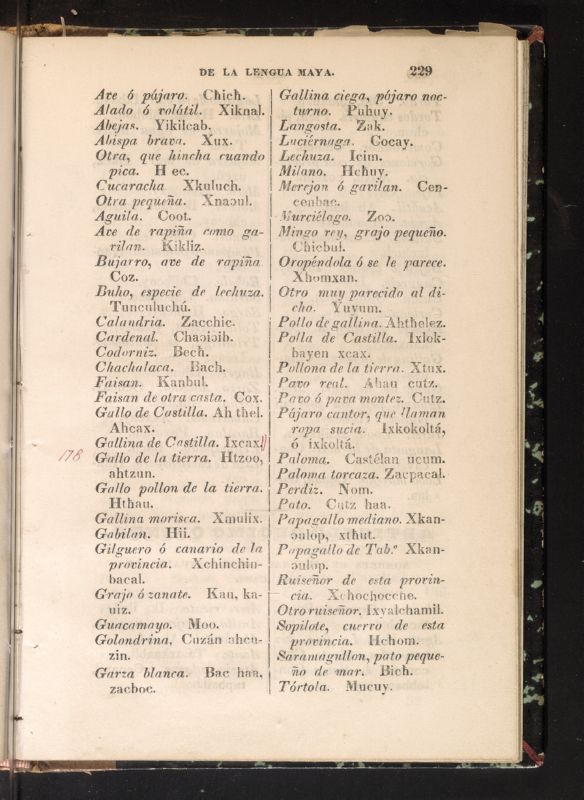 DE LA LENGUA MAYA. 229
Ave ó pájaro. Chich.
Alado ó volátil. Xiknal.
Abejas. Yikilcab.
Abispa brava. Xux.
Otra, que hincha cuando
pica. H ec.
Cucaracha Xkuluch.
Otra pequeña. Xnaɔul.
Aguila. Coot.
Ave de rapiña como ga-
vilan. Kikliz.
Bujarro, ave de rapiña
Coz.
Buho, especie de lechuza.
Tunculuchú.
Calandria. Zacchic.
Cardenal. Chaɔiɔib.
Codorniz. Bech.
Chachalaca. Bach.
Faisan. Kanbul.
Faisan de otra casta. Cox.
Gallo de Castilla. Ah thel.
Ahcax.
Gallina de Castilla. Ixcax.
178 Gallo de la tierra. Htzoo,
ahtzun.
Gallo pollon de la tierra.
Hthau.
Gallina morisca. Xmulix.
Gabilan. Hii.
Gilguero ó canario de la
provincia. Xchinchin-
bacal.
Grajo ó zanate. Kau, ka-
uiz.
Guacamayo. Moo.
Golondrina, Cuzán ahcu-
zin.
Garza blanca. Bac haa,
zacboc.
Gallina ciega, pájaro noc-
turno. Puhuy.
Langosta. Zak.
Luciérnaga. Cocay.
Lechuza. Icim.
Milano. Hchuy.
Merejon ó gavilan. Cen-
cenbac.
Murciélogo. Zoɔ.
Mingo rey, grajo pequeño.
Chicbul.
Oropéndola ó se le parece.
Xhomxan.
Otro muy parecido al di-
cho. Yuyum.
Pollo de gallina. Ahthelez.
Polla de Castilla. Ixlok-
bayen xcax.
Pollona de la tierra. Xtux.
Pavo real. Ahau cutz.
Pavo ó pava montez. Cutz.
Pájaro cantor, que llaman
ropa sucia. Ixkokoltá,
ó ixkoltá.
Paloma. Castélan ucum.
Paloma torcaza. Zacpacal.
Perdiz. Nom.
Pato. Cutz haa.
Papagallo mediano. Xkan-
ɔulop, xthut.
Papagallo de Tab.º Xkan-
ɔulop.
Ruiseñor de esta provin-
cia. Xchochocche.
Otro ruiseñor. Ixyalchamil.
Sopilote, cuervo de esta
provincia. Hchom.
Saramagullon, pato peque-
ño de mar. Bich.
Tórtola. Mucuy.